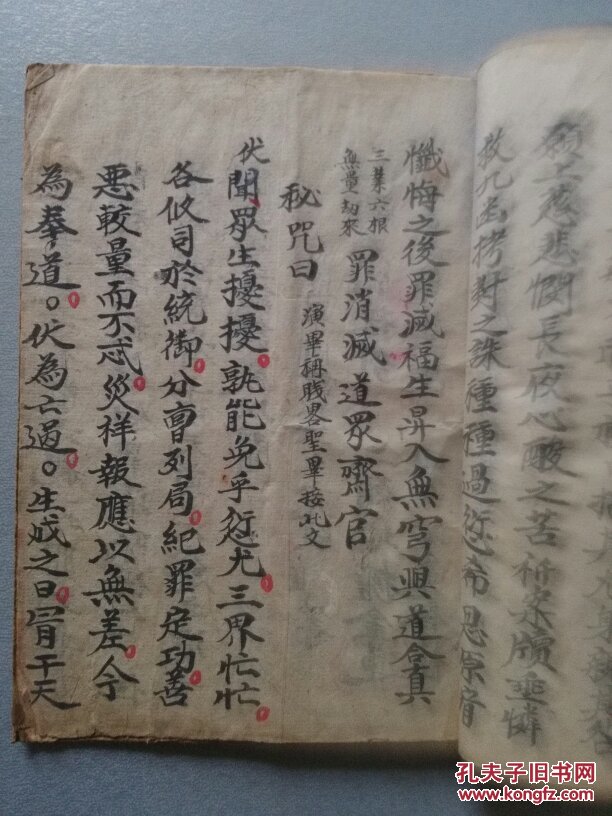 願上慈悲憫長夜心酸之苦祈求 垂憐
救九幽拷對之誅種種過愆希恩原宥
懺悔之後罪滅福生昇入無穹與道合真
三業六根
無量劫來
罪消滅道眾齋官
秘咒曰
演畢稱職畧聖畢接此文
伏聞眾生擾擾。孰能免乎愆尤。三界忙忙。
各攸司於統御。分曹列局。紀罪定功。善
惡較量而不忒。災祥報應以無差。今
為奉道。伏為亡過。生成之日。冐干天
孔夫子旧书网
www.kongfz.com